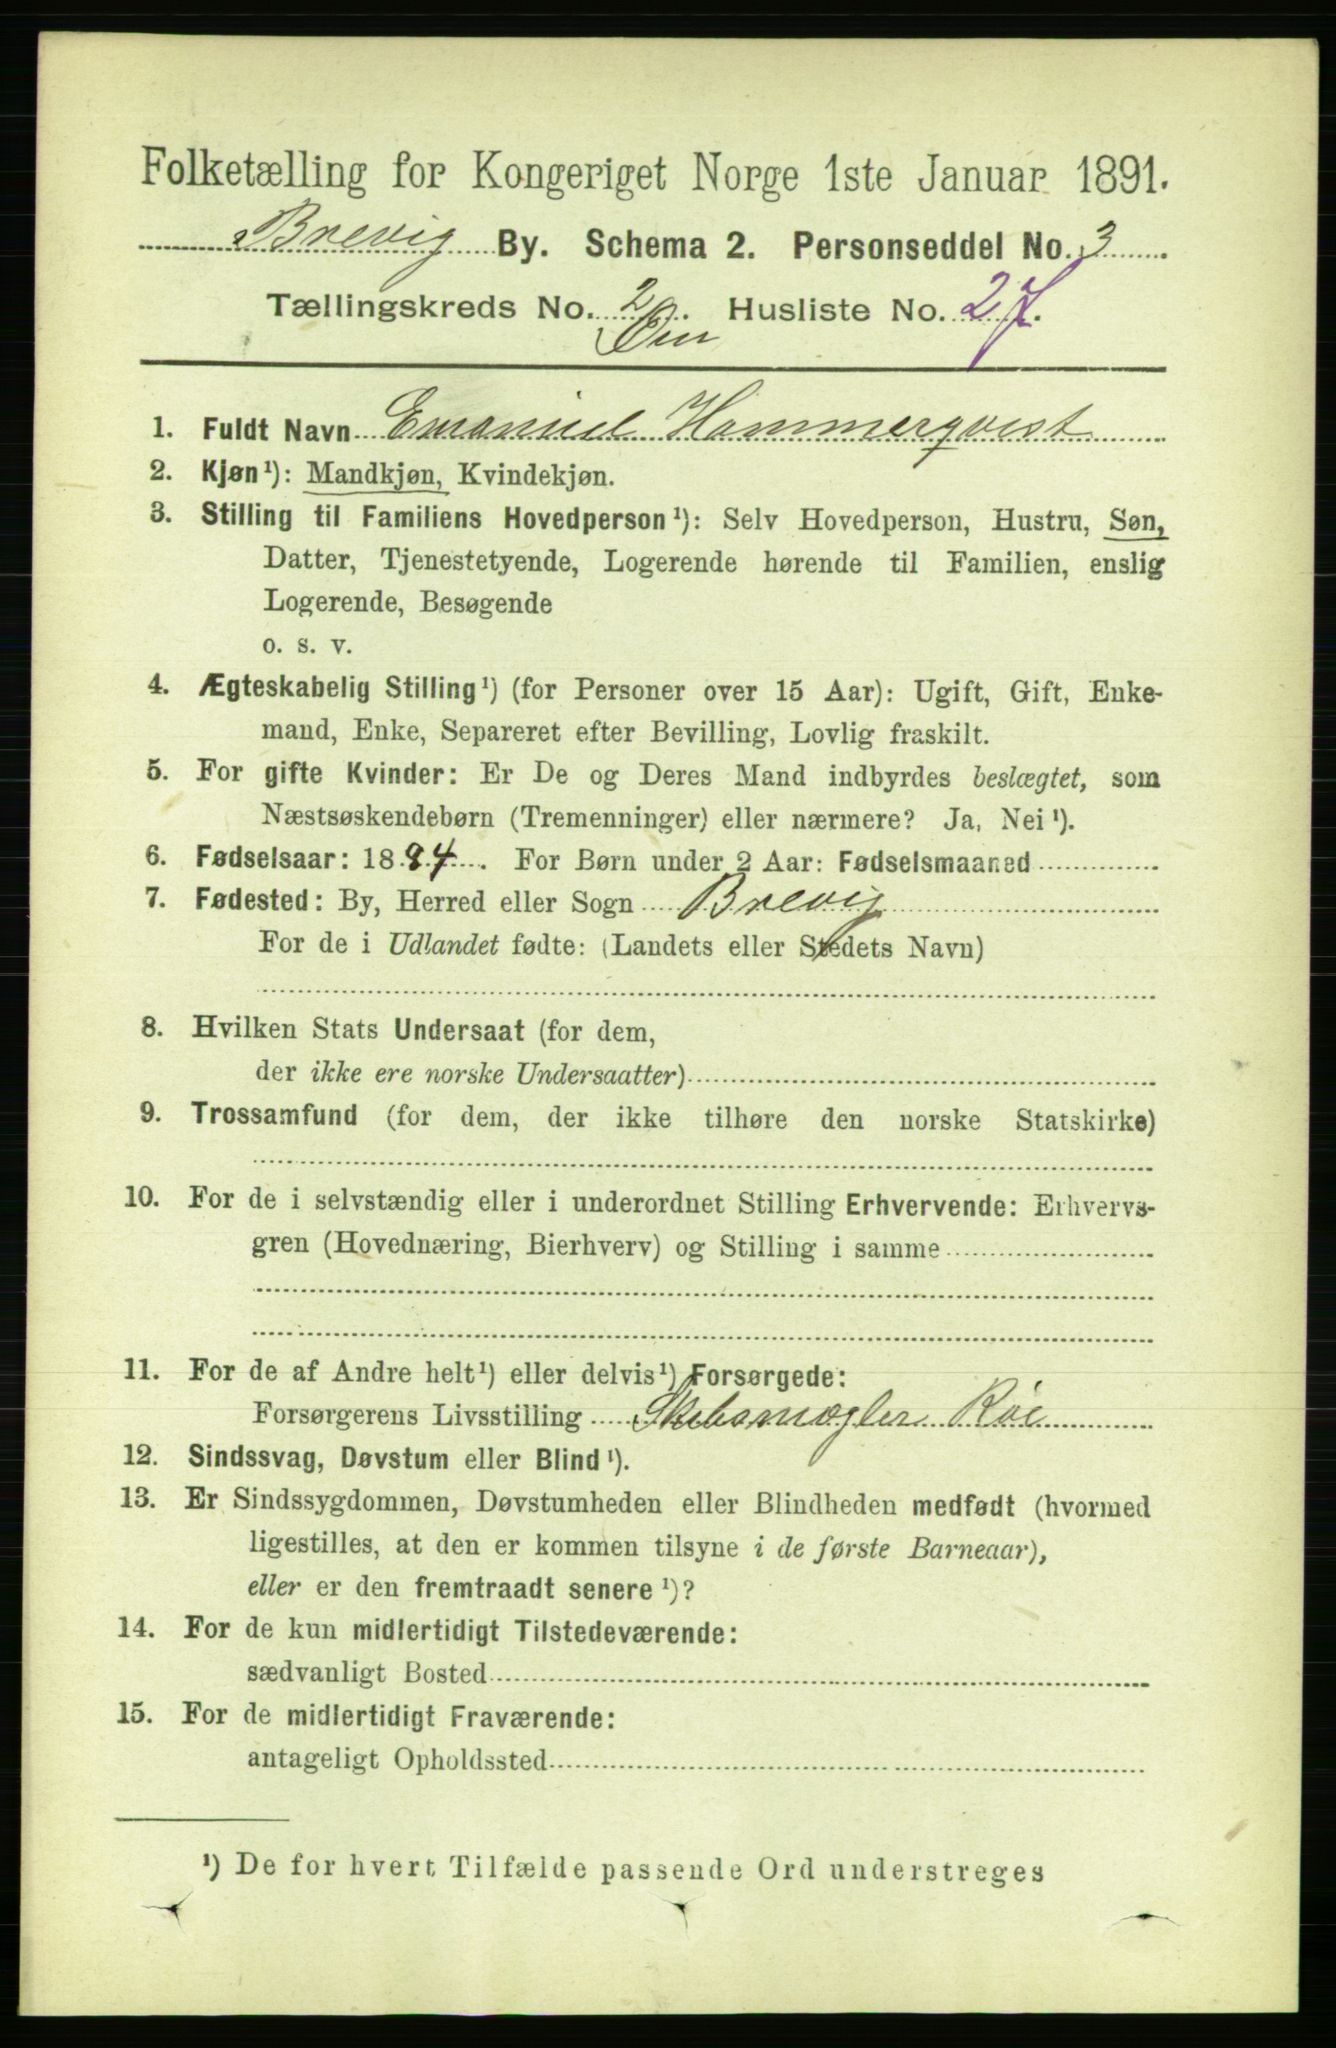 Folketælling for Kongeriget Norge 1ste Januar 1891.
Brevig By. Schema 2. Personseddel No. 3
Tællingskreds No. 2. Husliste No. 27.
Øen
1. Fuldt Navn Emanuel Hammerqvist
2. Kjøn¹): Mandkjøn, Kvindekjøn.
3. Stilling til Familiens Hovedperson¹): Selv Hovedperson, Hustru, Søn,
Datter, Tjenestetyende, Logerende hørende til Familien, enslig
Logerende, Besøgende
o. s. v.
4. Ægteskabelig Stilling¹) (for Personer over 15 Aar): Ugift, Gift, Enke-
mand, Enke, Separeret efter Bevilling, Lovlig fraskilt.
5. For gifte Kvinder: Er De og Deres Mand indbyrdes beslægtet, som
Næstsøskendebørn (Tremenninger) eller nærmere? Ja, Nei¹).
6. Fødselsaar: 1884. For Børn under 2 Aar: Fødselsmaaned
7. Fødested: By, Herred eller Sogn Brevig
For de i Udlandet fødte: (Landets eller Stedets Navn)
8. Hvilken Stats Undersaat (for dem,
der ikke ere norske Undersaatter)
9. Trossamfund (for dem, der ikke tilhøre den norske Statskirke)
10. For de i selvstændig eller i underordnet Stilling Erhvervende: Erhvervs-
gren (Hovednæring, Bierhverv) og Stilling i samme
11. For de af Andre helt¹) eller delvis¹) Forsørgede:
Forsørgerens Livsstilling Skibsmægler
12. Sindssvag, Døvstum eller Blind¹).
13. Er Sindssygdommen, Døvstumheden eller Blindheden medfødt (hvormed
ligestilles, at den er kommen tilsyne i de første Barneaar),
eller er den fremtraadt senere¹)?
14. For de kun midlertidigt Tilstedeværende:
sædvanligt Bosted
15. For de midlertidigt Fraværende:
antageligt Opholdssted
¹) De for hvert Tilfælde passende Ord understreges